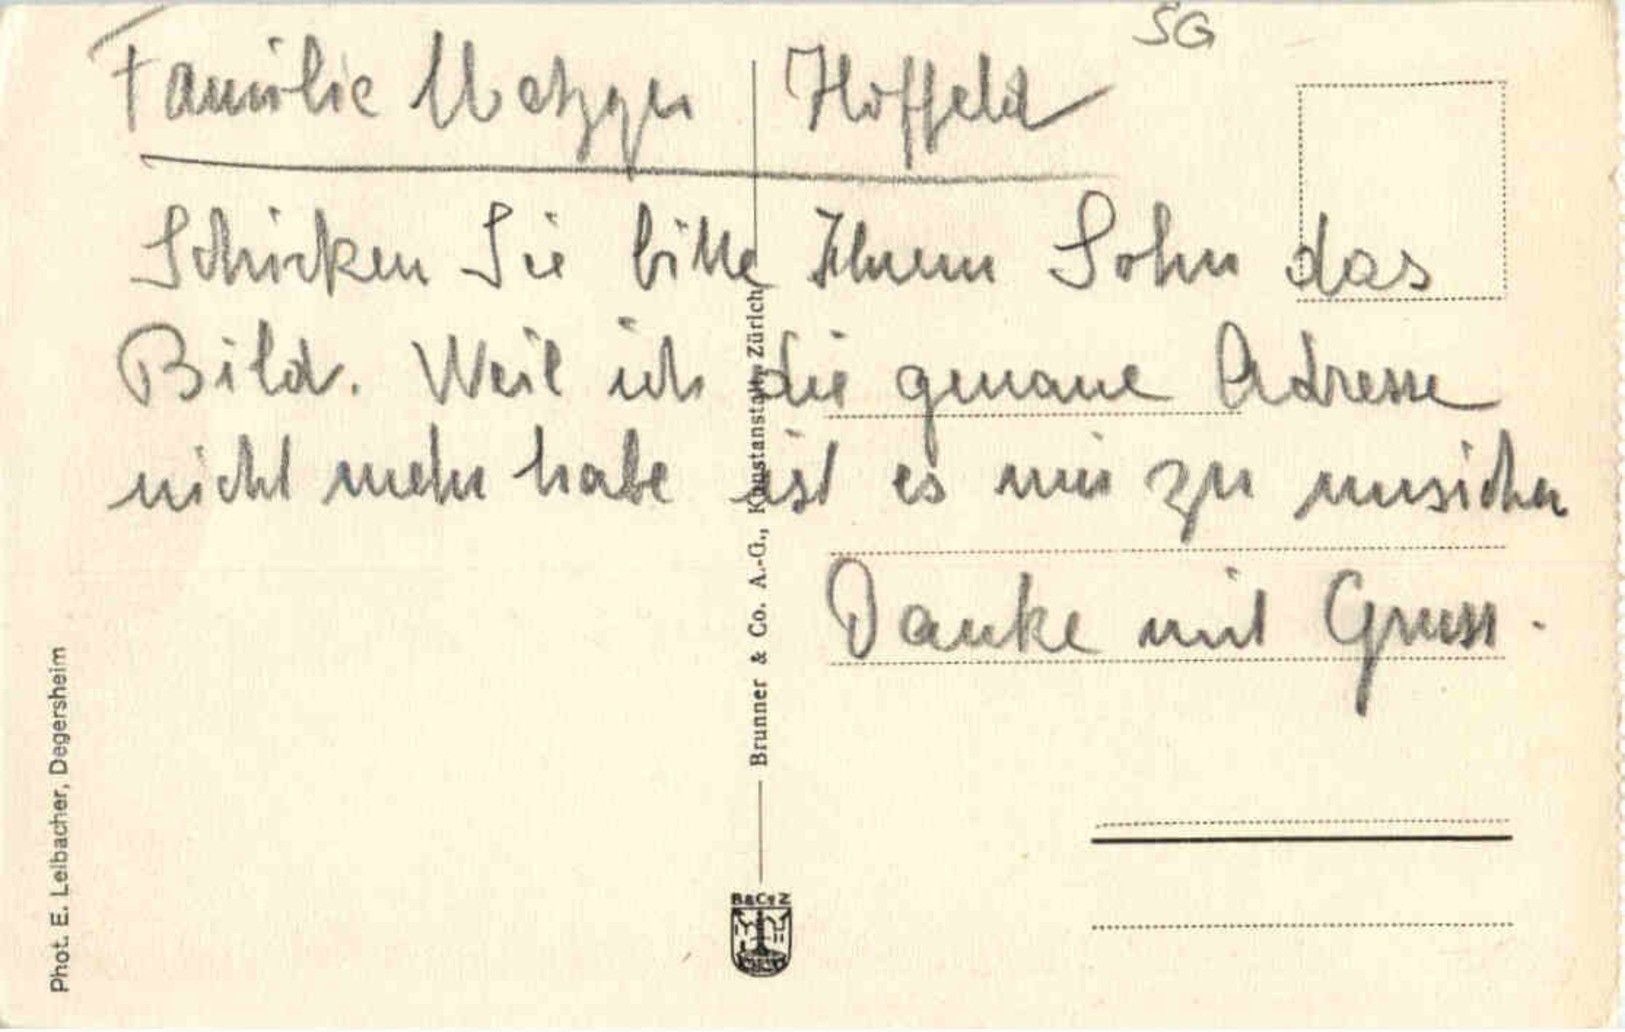 SG
Familie Metzger Hoffeld
Schicken Sie bitte Ihrem Sohn das
Bild. Weil ich die genaue Adresse
nicht mehr habe ist es mir zu unsicher
Danke mit Gruss.
Brunner & Co. A.-G., Kunstanstalt, Zürich
Phot. E. Leibacher, Degersheim
B&Co Z